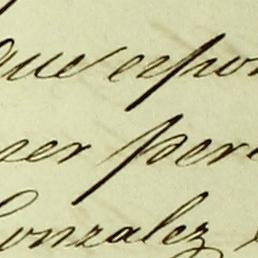 que espon
ner per
Gonzalez